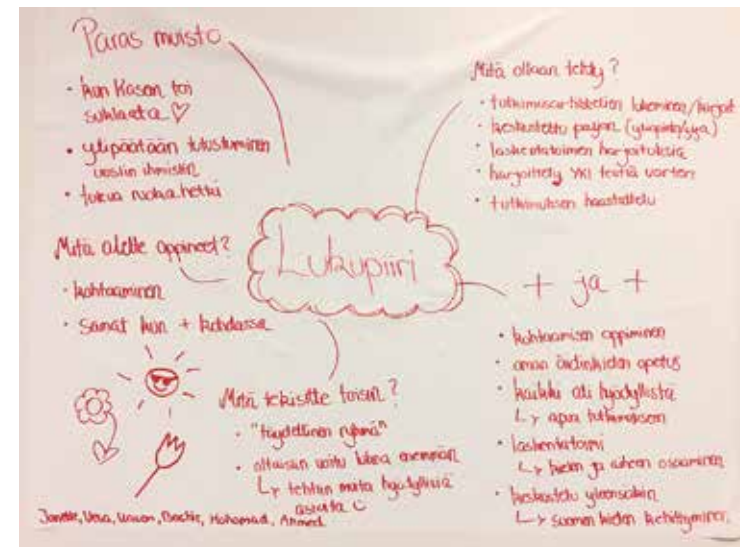 Paras muisto
• kun Kasan toi
suklaata
• ylipäätään tutustuminen
uusiin ihmisiin
• tuleva ruokahetki
Mitä olette oppineet?
• kohtaaminen
• samat kun + kohdassa
Lukupiiri
Mitä ollaan tehty?
• tutkimusartikkelien lukeminen/kirjat
• keskusteltu paljon (yliopisto/
• laskentatoimen harjoituksia
• harjoittelu YKI testiä varten
• tutkimuksen haastattelu
+ ja +
• kohtaamisen oppiminen
• oman äidinkielen opetus
• kaikki oli hyödyllistä
↳ apua tutkimukseen
• laskentatoimi
↳ kielen ja aiheen osaaminen
• keskustelu yleensäkin
↳ suomen kielen kehittyminen
Mitä tekisitte toisin?
• "täydellinen ryhmä"
• oltaisiin voitu lukea enemmän
↳ tehtiin muita hyödyllisiä
asioita
Janette, Veera, Bachir, Mohamad, Ahmed